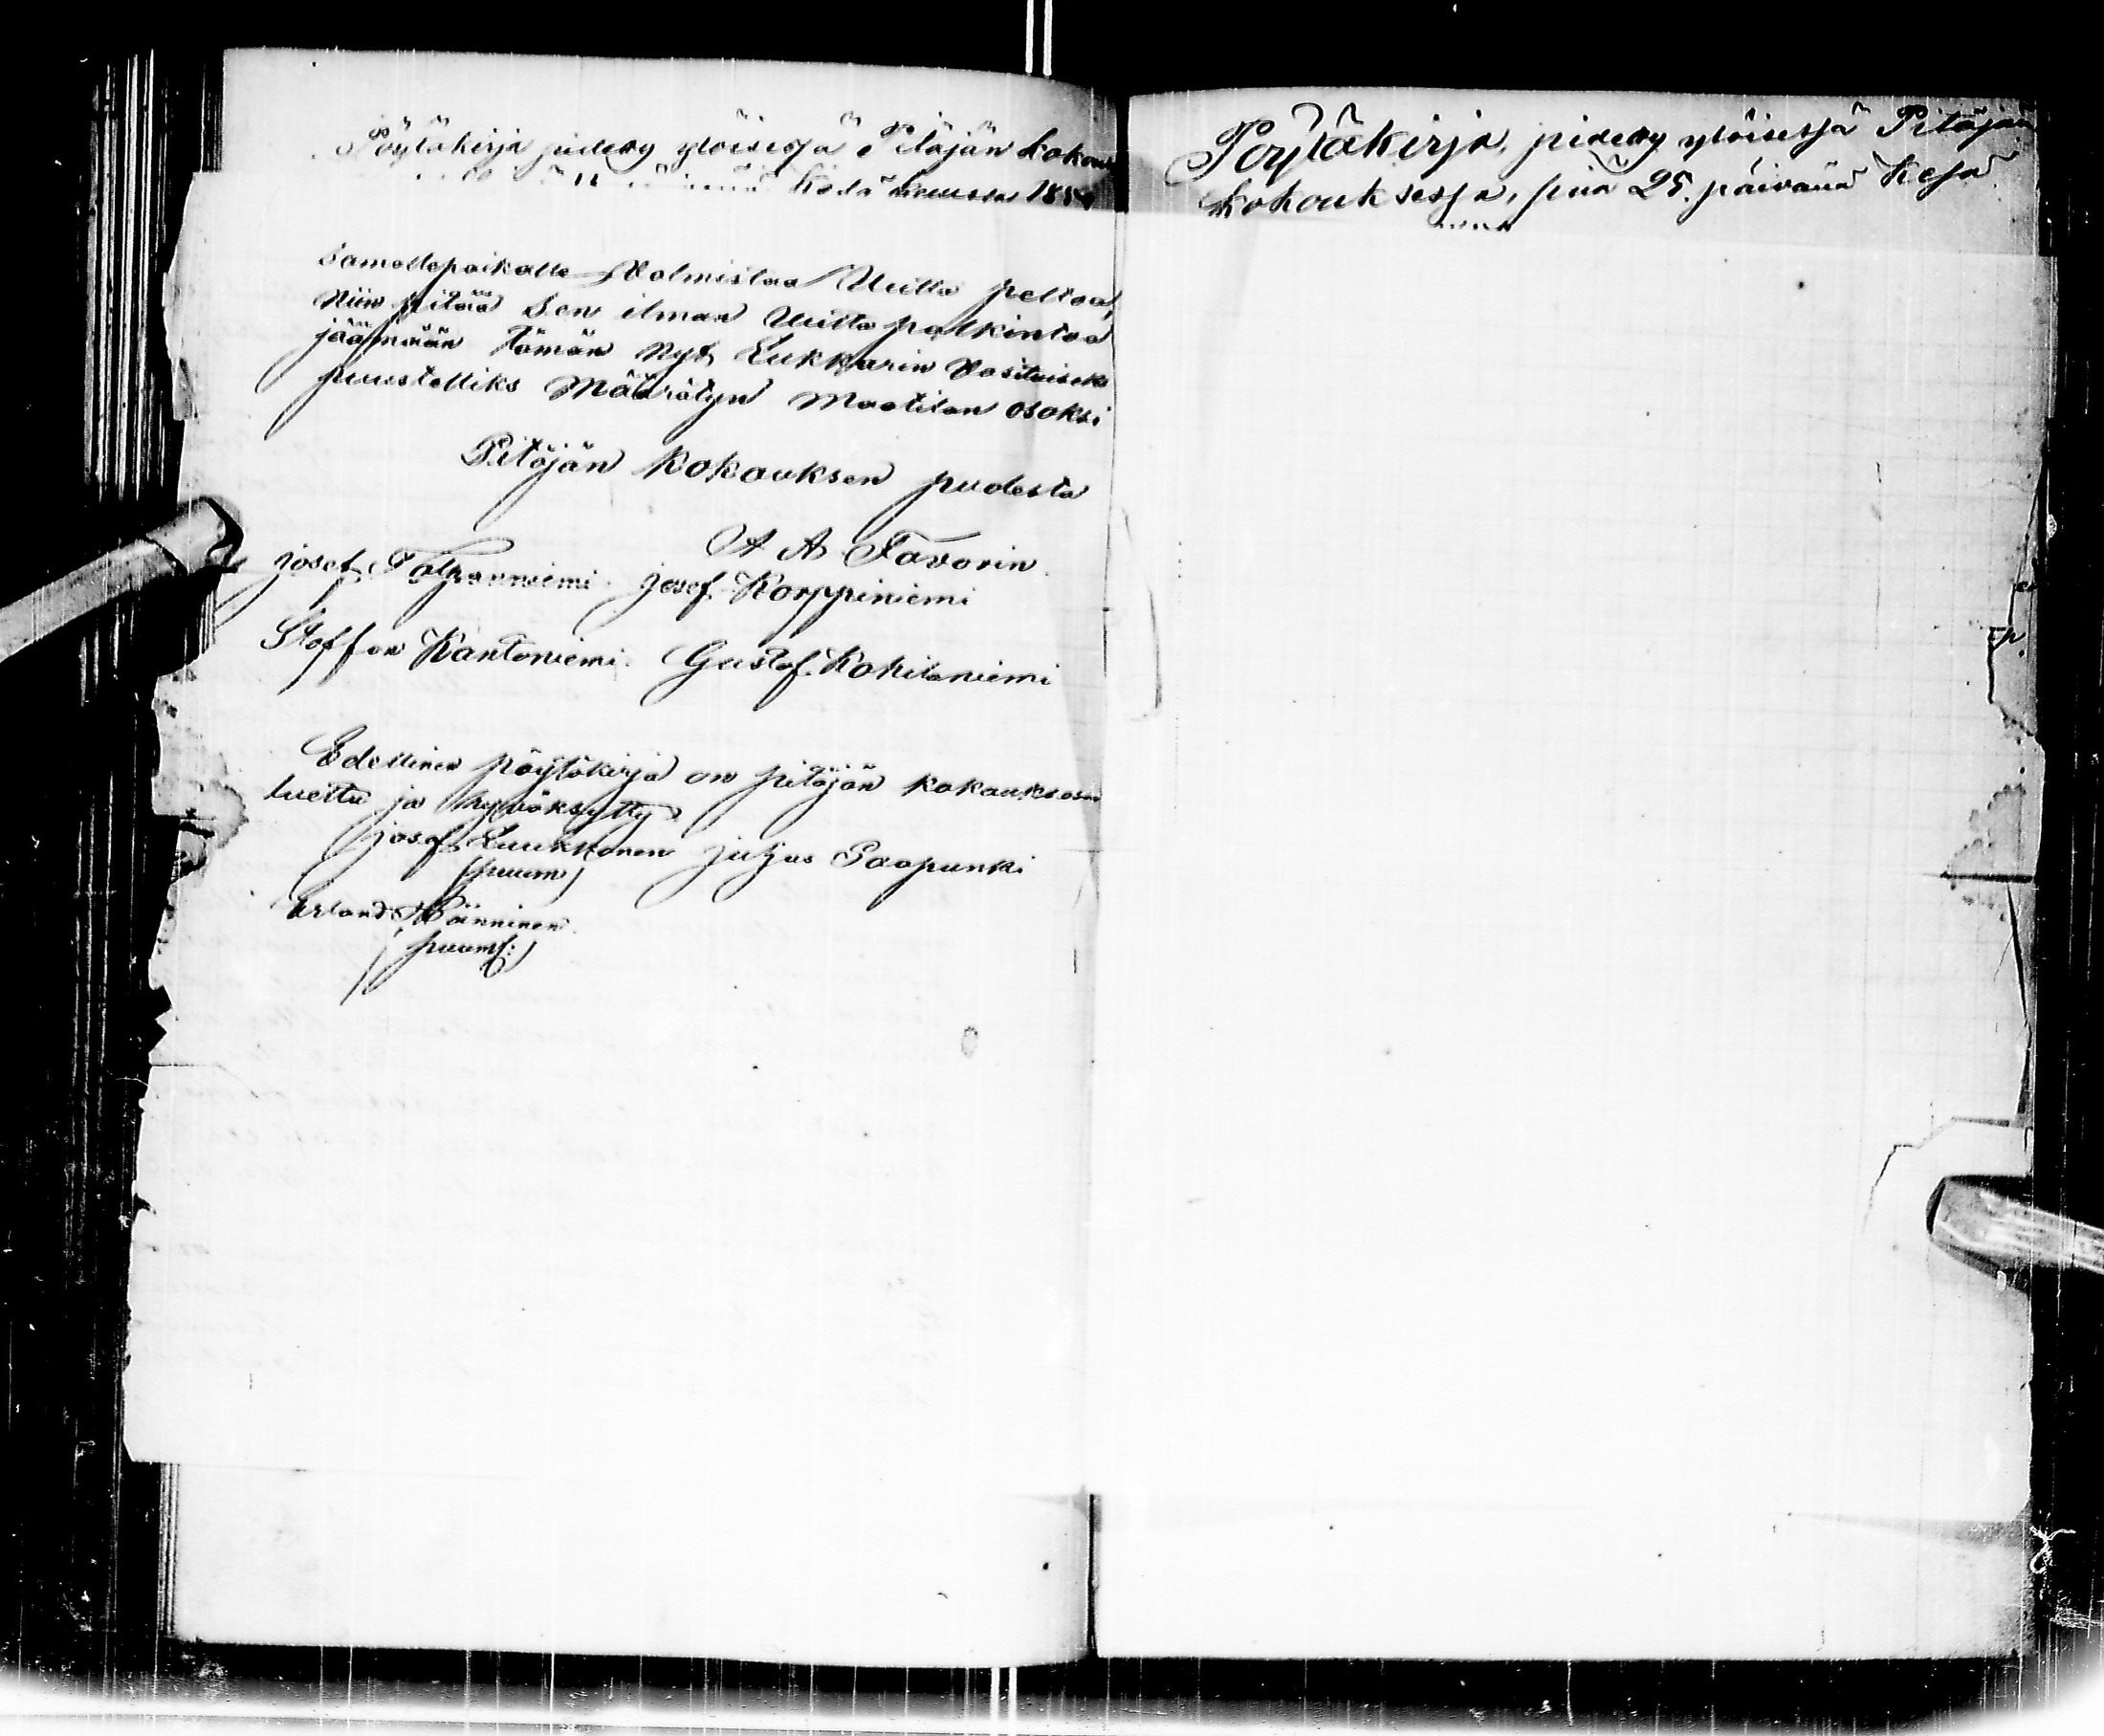 Pöytäkirja pidetty yleisessä Pitäjän kokouk
Kesäkuussa 18
samallepaikalle Valmistaa Uutta peltoa,
Niin pitää Sen ilman Uutta palkintoa
jäämään Tämän Nyt Lukkarin Vasituiseks
puustelliks Määrätyn Maatilan osaksi
Pitäjän Kokouksen puolesta
A A Favorin
Josef Tolvanniemi. Josef. Karppiniemi
Staffan Kantoniemi. Gustaf. Kohilaniemi
Edellinen pöytäkirja on pitäjän kokouksesa
luettu ja hyväksytty
Josef Luukkonen Julius Paapunki
(puum)
Erland Wänninen
(puum:)
Pöytäkirja, pidetty yleisessä Pitäjän
kokouksessa, siin 25. päivänä Kesä